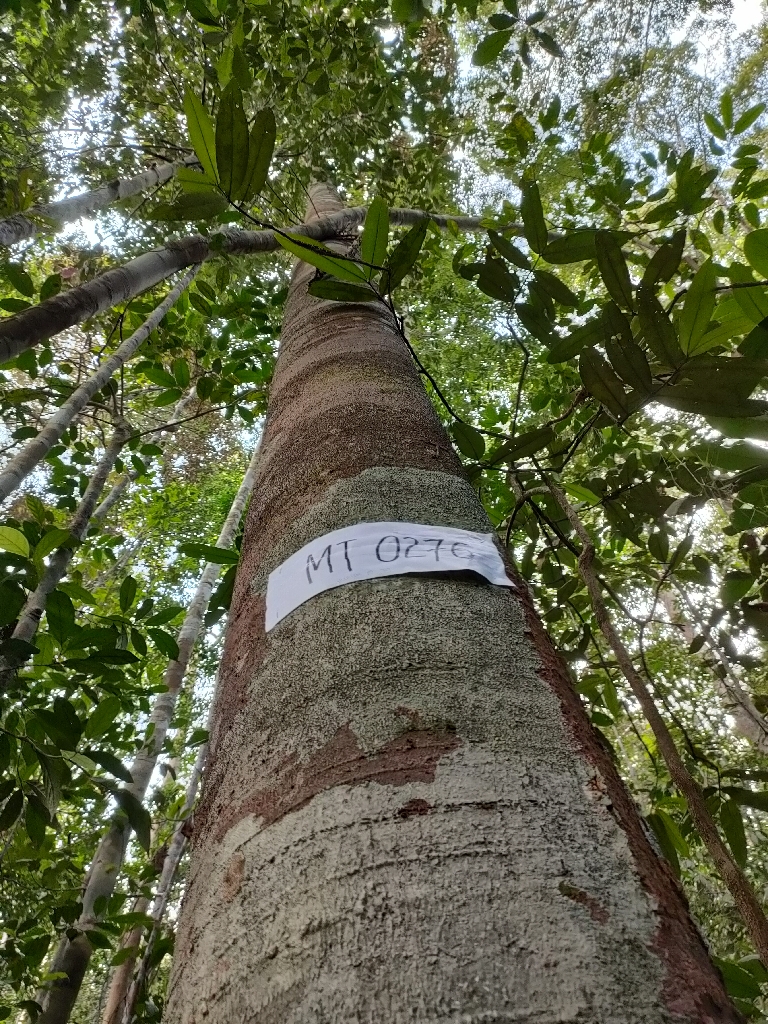 MT 0276